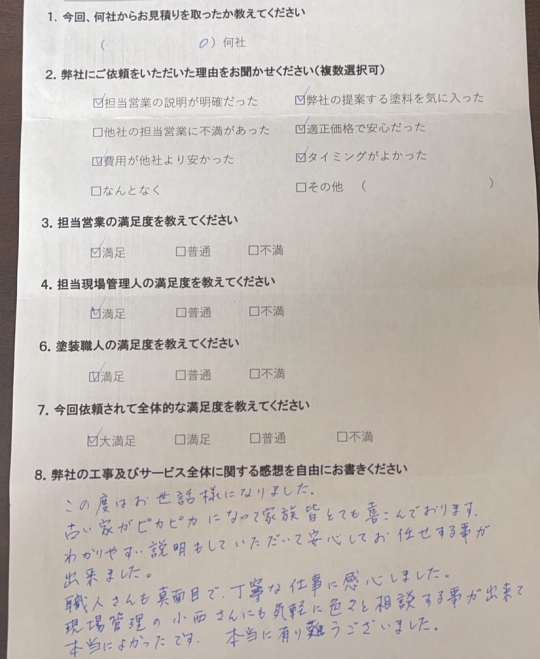 1. 今回、何社からお見積りを取ったか教えてください
( 0 ) 何社
2. 弊社にご依頼をいただいた理由をお聞かせください(複数選択可)
☑担当営業の説明が明確だった ☑弊社の提案する塗料を気に入った
☐他社の担当営業に不満があった ☑適正価格で安心だった
☑費用が他社より安かった ☑タイミングがよかった
☐なんとなく ☐その他 ( )
3. 担当営業の満足度を教えてください
☑満足 ☐普通 ☐不満
4. 担当現場管理人の満足度を教えてください
☑満足 ☐普通 ☐不満
6. 塗装職人の満足度を教えてください
☑満足 ☐普通 ☐不満
7. 今回依頼されて全体的な満足度を教えてください
☑大満足 ☐満足 ☐普通 ☐不満
8. 弊社の工事及びサービス全体に関する感想を自由にお書きください
この度はお世話様になりました。
古い家がピカピカになって家族皆とても喜こんでおります.
わかりやすい説明もしていただいて安心してお任せする事が
出来ました。
職人さんも真面目で、丁寧な仕事に感心しました。
現場管理の小西さんにも気軽に色々と相談する事が出来て
本当によかったです. 本当に有り難うございました。